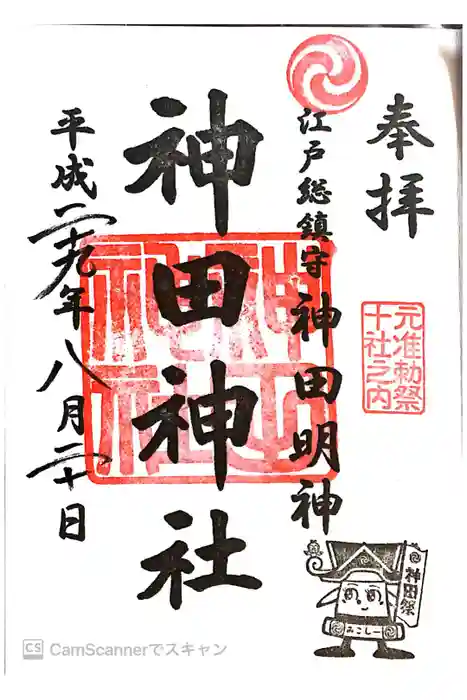 奉拝
元准勅祭
十社之内
江戸総鎮守 神田明神
神田神社
平成二十九年八月二十日
神田祭
みこしー
CS CamScannerでスキャン